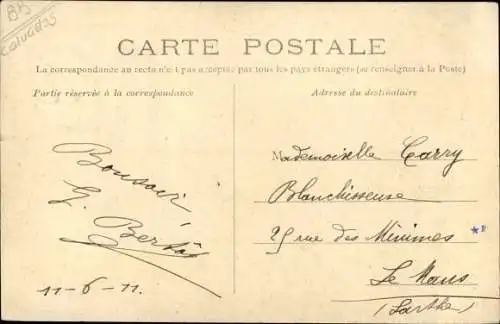 B45
Calvados
CARTE POSTALE
La correspondance au recto n'est pas acceptée par tous les pays étrangers (se renseigner à la Poste)
Partie réservée à la correspondance
Adresse du destinataire
Bonsoir
G.
11-6-11.
Mademoiselle Carry
Blanchisseuse
25 rue des Minimes
Le Mans
(Sarthe)